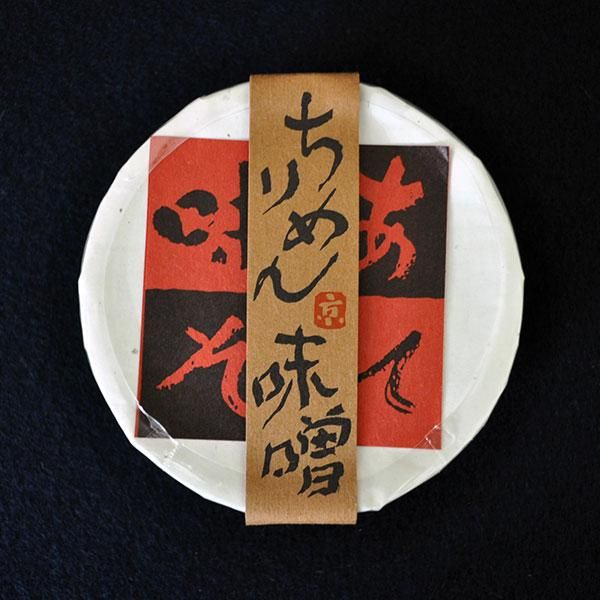 ちりめん味噌
京
あて
味そ